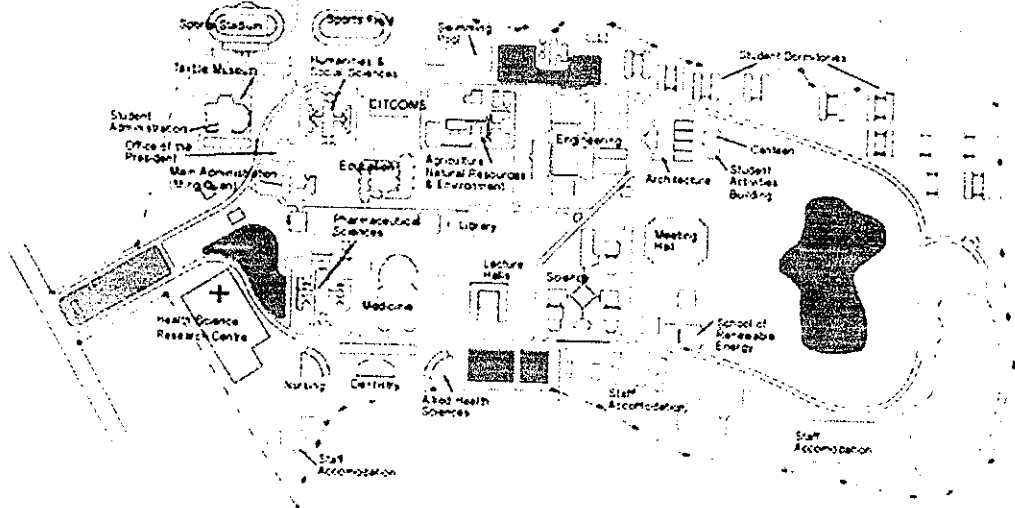 Sports Stadium
Sports Field
Swimming
Pool
Student Dormitories
Textile Museum
Humanities &
Social Sciences
CITCOMS
Student
Administration
Office of the
President
Main Administration
(Ming Quan)
Education
Agriculture
Natural Resources
& Environment
Engineering
Architecture
Canteen
Student
Activities
Building
Pharmaceutical
Sciences
Library
Meeting
Hall
Lecture
Halls
Science
Medicine
Health Science
Research Centre
School of
Renewable
Energy
Nursing
Dentistry
Allied Health
Sciences
Staff
Accomodation
Staff
Accomodation
Staff
Accomodation